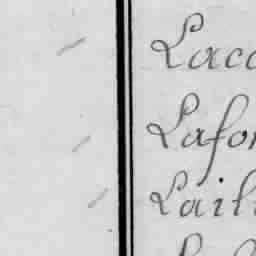 Laco
Lafon
Laili